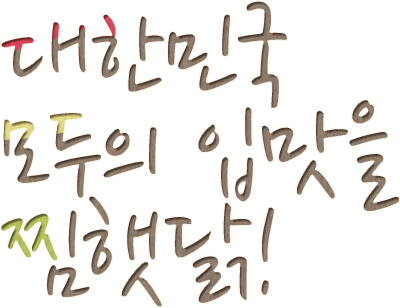 대한민국
모두의 입맛을
찜햇닭!